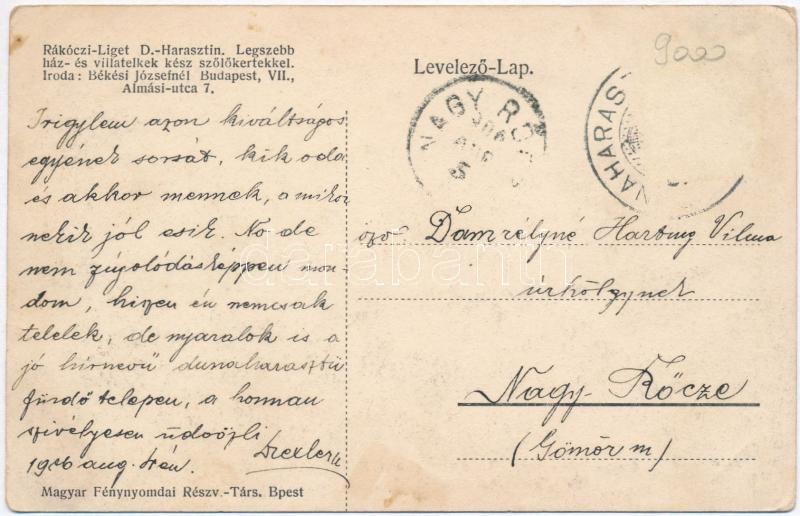 Rákóczi-Liget D.-Harasztin. Legszebb
ház- és villatelkek kész szőlőkertekkel.
Iroda: Békési Józsefnél Budapest, VII.,
Almási-utca 7.
Levelező-Lap.
9000
NAGY RŐ
NAHARAS
Irigylem azon kiváltságos
egyének sorsát, kik oda
és akkor mennek, a mikor
nekik jól esik. No de
nem zúgolódásképpen mon-
dom, hiszen én nemcsak
telelek, de nyaralok is a
jó hírnevű dunaharaszti
fürdő telepen, a honnan
szivélyesen üdvözli
1906 aug.
özv Damrélyné Hartung Vilma
úrhölgynek
Nagy-Rőcze
(Gömör m)
Magyar Fénynyomdai Részv.-Társ. Bpest
darabanth